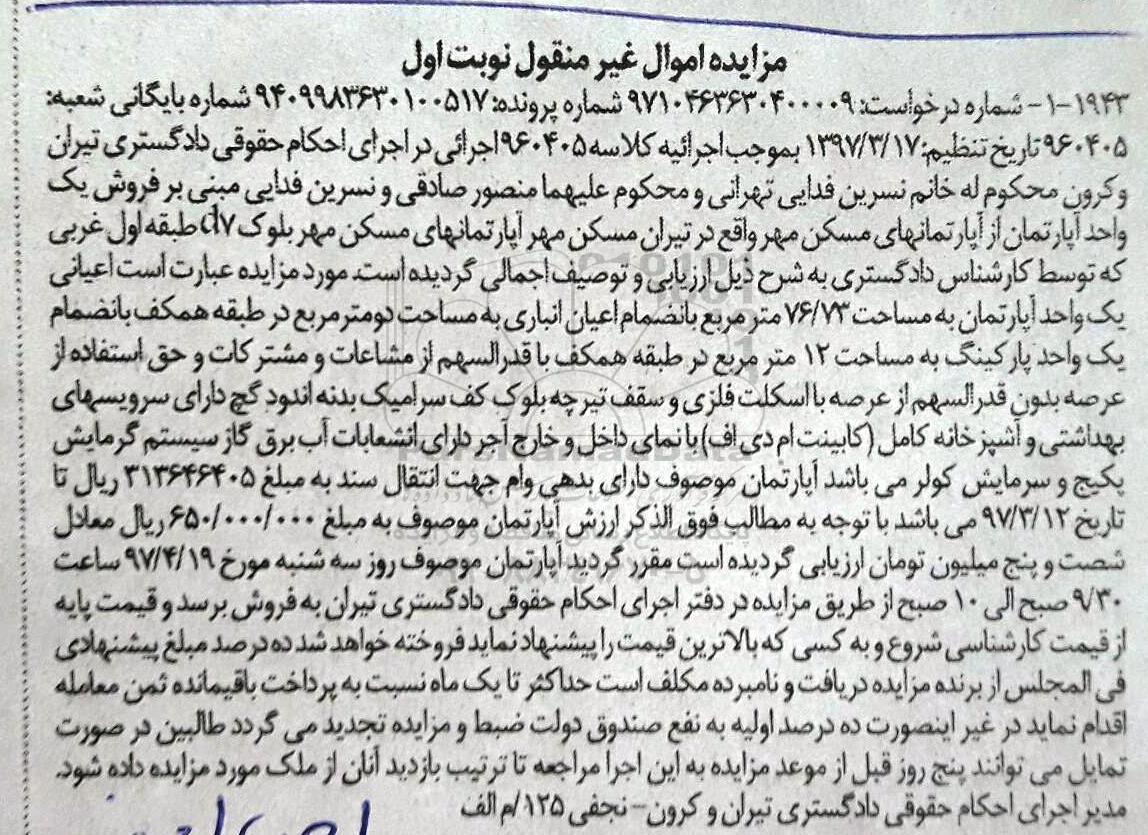 مزایده اموال غیر منقول نوبت اول
۱-۱۹۴۳- شماره درخواست: ۹۷۱۰۴۶۳۶۳۰۴۰۰۰۰۹ شماره پرونده: ۹۴۰۹۹۸۳۶۳۰۱۰۰۵۱۷ شماره بایگانی شعبه:
۹۶۰۴۰۵ تاریخ تنظیم: ۱۳۹۷/۳/۱۷ بموجب اجرائیه کلاسه ۹۶۰۴۰۵ اجرائی در اجرای احکام حقوقی دادگستری تیران
و کرون محکوم له خانم نسرین فدایی تهرانی و محکوم علیهما منصور صادقی و نسرین فدایی مبنی بر فروش یک
واحد آپارتمان از آپارتمانهای مسکن مهر واقع در تیران مسکن مهر آپارتمانهای مسکن مهر بلوک طبقه اول غربی
که توسط کارشناس دادگستری به شرح ذیل ارزیابی و توصیف اجمالی گردیده است. مورد مزایده عبارت است اعیانی
یک واحد آپارتمان به مساحت ۷۶/۷۳ متر مربع بانضمام اعیان انباری به مساحت دو متر مربع در طبقه همکف بانضمام
یک واحد پارکینگ به مساحت ۱۲ متر مربع در طبقه همکف با قدرالسهم از مشاعات و مشترکات و حق استفاده از
عرصه بدون قدرالسهم از عرصه با اسکلت فلزی و سقف تیرچه بلوک کف سرامیک بدنه اندود گچ دارای سرویسهای
بهداشتی و آشپزخانه کامل (کابینت ام دی اف) با نمای داخل و خارج آجر دارای انشعابات آب برق گاز سیستم گرمایش
پکیج و سرمایش کولر می باشد آپارتمان موصوف دارای بدهی وام جهت انتقال سند به مبلغ ۳۱۳۶۴۶۴۰۵ ریال تا
تاریخ ۹۷/۳/۱۲ می باشد با توجه به مطالب فوق الذکر ارزش آپارتمان موصوف به مبلغ ۶۵۰/۰۰۰/۰۰۰ ریال معادل
شصت و پنج میلیون تومان ارزیابی گردیده است مقرر گردید آپارتمان موصوف روز سه شنبه مورخ ۹۷/۴/۱۹ ساعت
۹/۳۰ صبح الی ۱۰ صبح از طریق مزایده در دفتر اجرای احکام حقوقی دادگستری تیران به فروش برسد و قیمت پایه
از قیمت کارشناسی شروع و به کسی که بالاترین قیمت را پیشنهاد نماید فروخته خواهد شد ده درصد مبلغ پیشنهادی
فی المجلس از برنده مزایده دریافت و نامبرده مکلف است حداکثر تا یک ماه نسبت به پرداخت باقیمانده ثمن معامله
اقدام نماید در غیر اینصورت ده درصد اولیه به نفع صندوق دولت ضبط و مزایده تجدید می گردد طالبین در صورت
تمایل می توانند پنج روز قبل از موعد مزایده به این اجرا مراجعه تا ترتیب بازدید آنان از ملک مورد مزایده داده شود.
مدیر اجرای احکام حقوقی دادگستری تیران و کرون - نجفی ۱۲۵/م الف